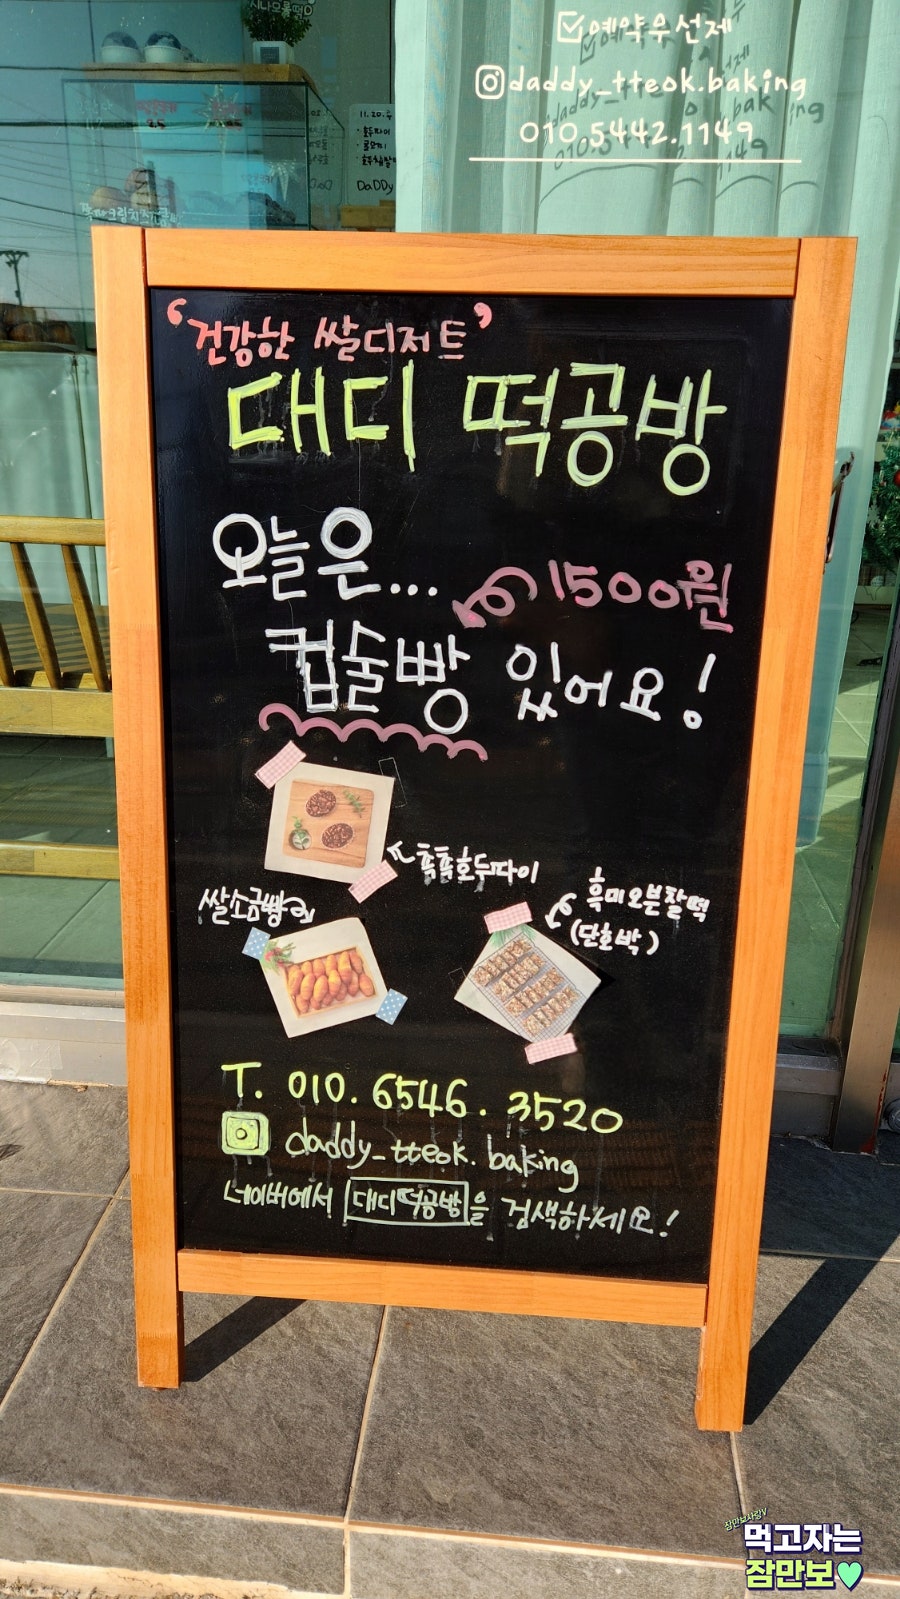 예약우선제
daddy_tteok.baking
010.5442.1149
11.20.
DaDDy
'건강한 쌀디저트'
대디 떡공방
오늘은...
1500원
컵술빵 있어요!
흑흑호두파이
쌀소금빵
흑미오븐찰떡
(단호박)
T. 010. 6546. 3520
daddy_tteok.baking
네이버에서 대디떡공방을 검색하세요!
잠만보사랑V
먹고자는
잠만보